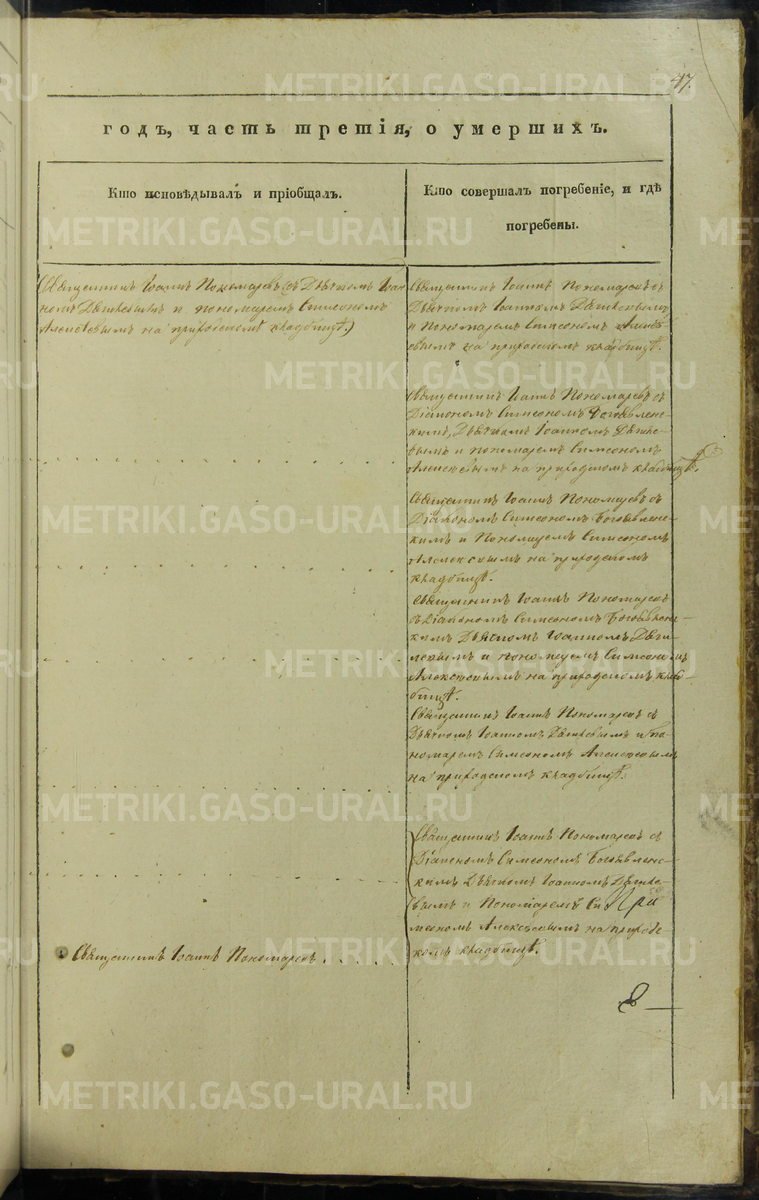 47.
годъ, часть третія, о умершихъ.
Кто исповѣдывалъ и пріобщалъ.
Кто совершалъ погребеніе, и гдѣ
погребены.
Священникъ Іоаннъ Пономаревъ (съ Дьячкомъ Іоан
номъ и пономаремъ Симеономъ
Алексѣевымъ на приходскомъ кладбищѣ.)
Священникъ Іоаннъ Пономаревъ съ
Дьячкомъ Іоанномъ
и Пономаремъ Симеономъ Алексѣ
евымъ на приходскомъ кладбищѣ.
Священникъ Іоаннъ Пономаревъ съ
Діакономъ Симеономъ Богоявленс-
кимъ, Дьячкомъ Іоанномъ
и пономаремъ Симеономъ
Алексѣевымъ на приходскомъ кладбищѣ.
Священникъ Іоаннъ Пономаревъ съ
Діакономъ Симеономъ Богоявленс-
кимъ и Пономаремъ Симеономъ
Алексѣевымъ на приходскомъ
кладбищѣ.
Священникъ Іоаннъ Пономаревъ
съ Діакономъ Симеономъ Богоявленс-
кимъ Дьячкомъ Іоанномъ
и пономаремъ Симеономъ
Алексѣевымъ на приходскомъ клад-
бищѣ.
Священникъ Іоаннъ Пономаревъ съ
Дьячкомъ Іоанномъ и по-
номаремъ Симеономъ Алексѣевымъ
на приходскомъ кладбищѣ.
Священникъ Іоаннъ Пономаревъ съ
Діакономъ Симеономъ Богоявленс-
кимъ Дьячкомъ Іоанномъ
и Пономаремъ Си
меономъ Алексѣевымъ на приходс
комъ кладбищѣ.
Священникъ Іоаннъ Пономаревъ
METRIKI.GASO-URAL.RU